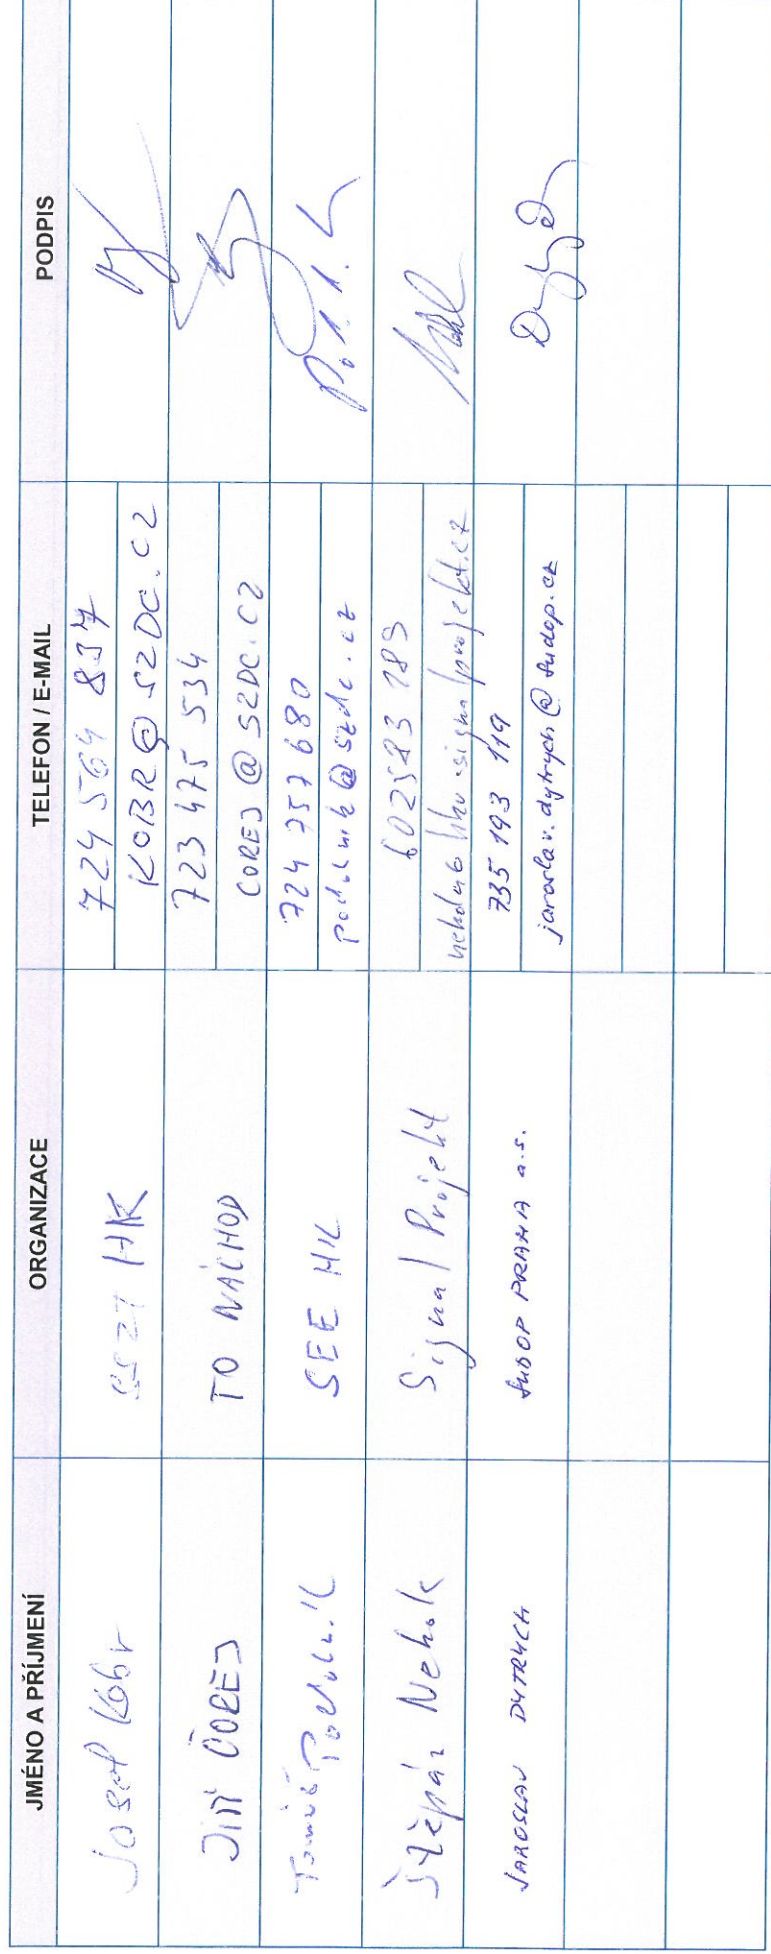 JMÉNO A PŘÍJMENÍ ORGANIZACE TELEFON / E-MAIL PODPIS
Josef Kobr SSZT HK 724 564 837
KOBR@SZDC.CZ
Jiří ČOREJ TO NÁCHOD 723 475 534
COREJ@SZDC.CZ
Tomáš Podolník SEE HK 724 757 680
podolnik@szdc.cz
Štěpán Nehok Signal Projekt 602583 789
735 193 119
JAROSLAV DYTRYCH SUDOP PRAHA a.s. jaroslav.dytrych@sudop.cz